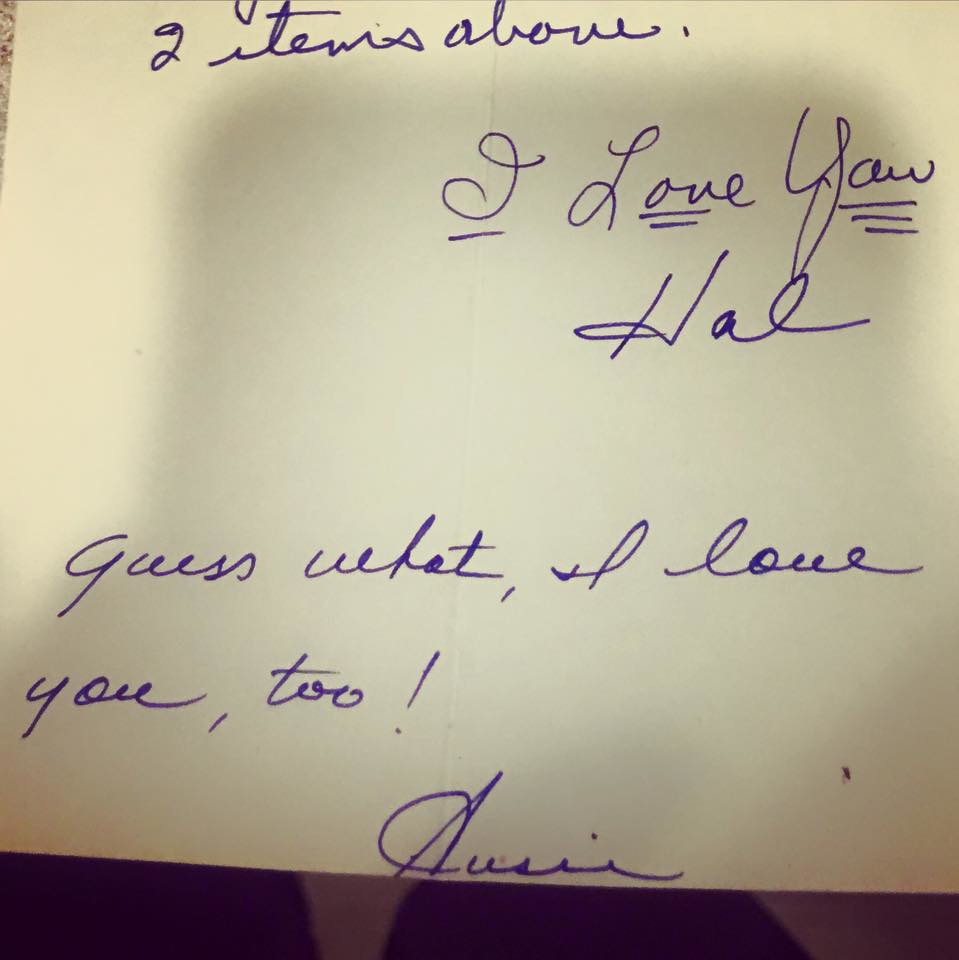 2 items above.
I Love You
Hal
Guess what, I love
you, too!
Susie